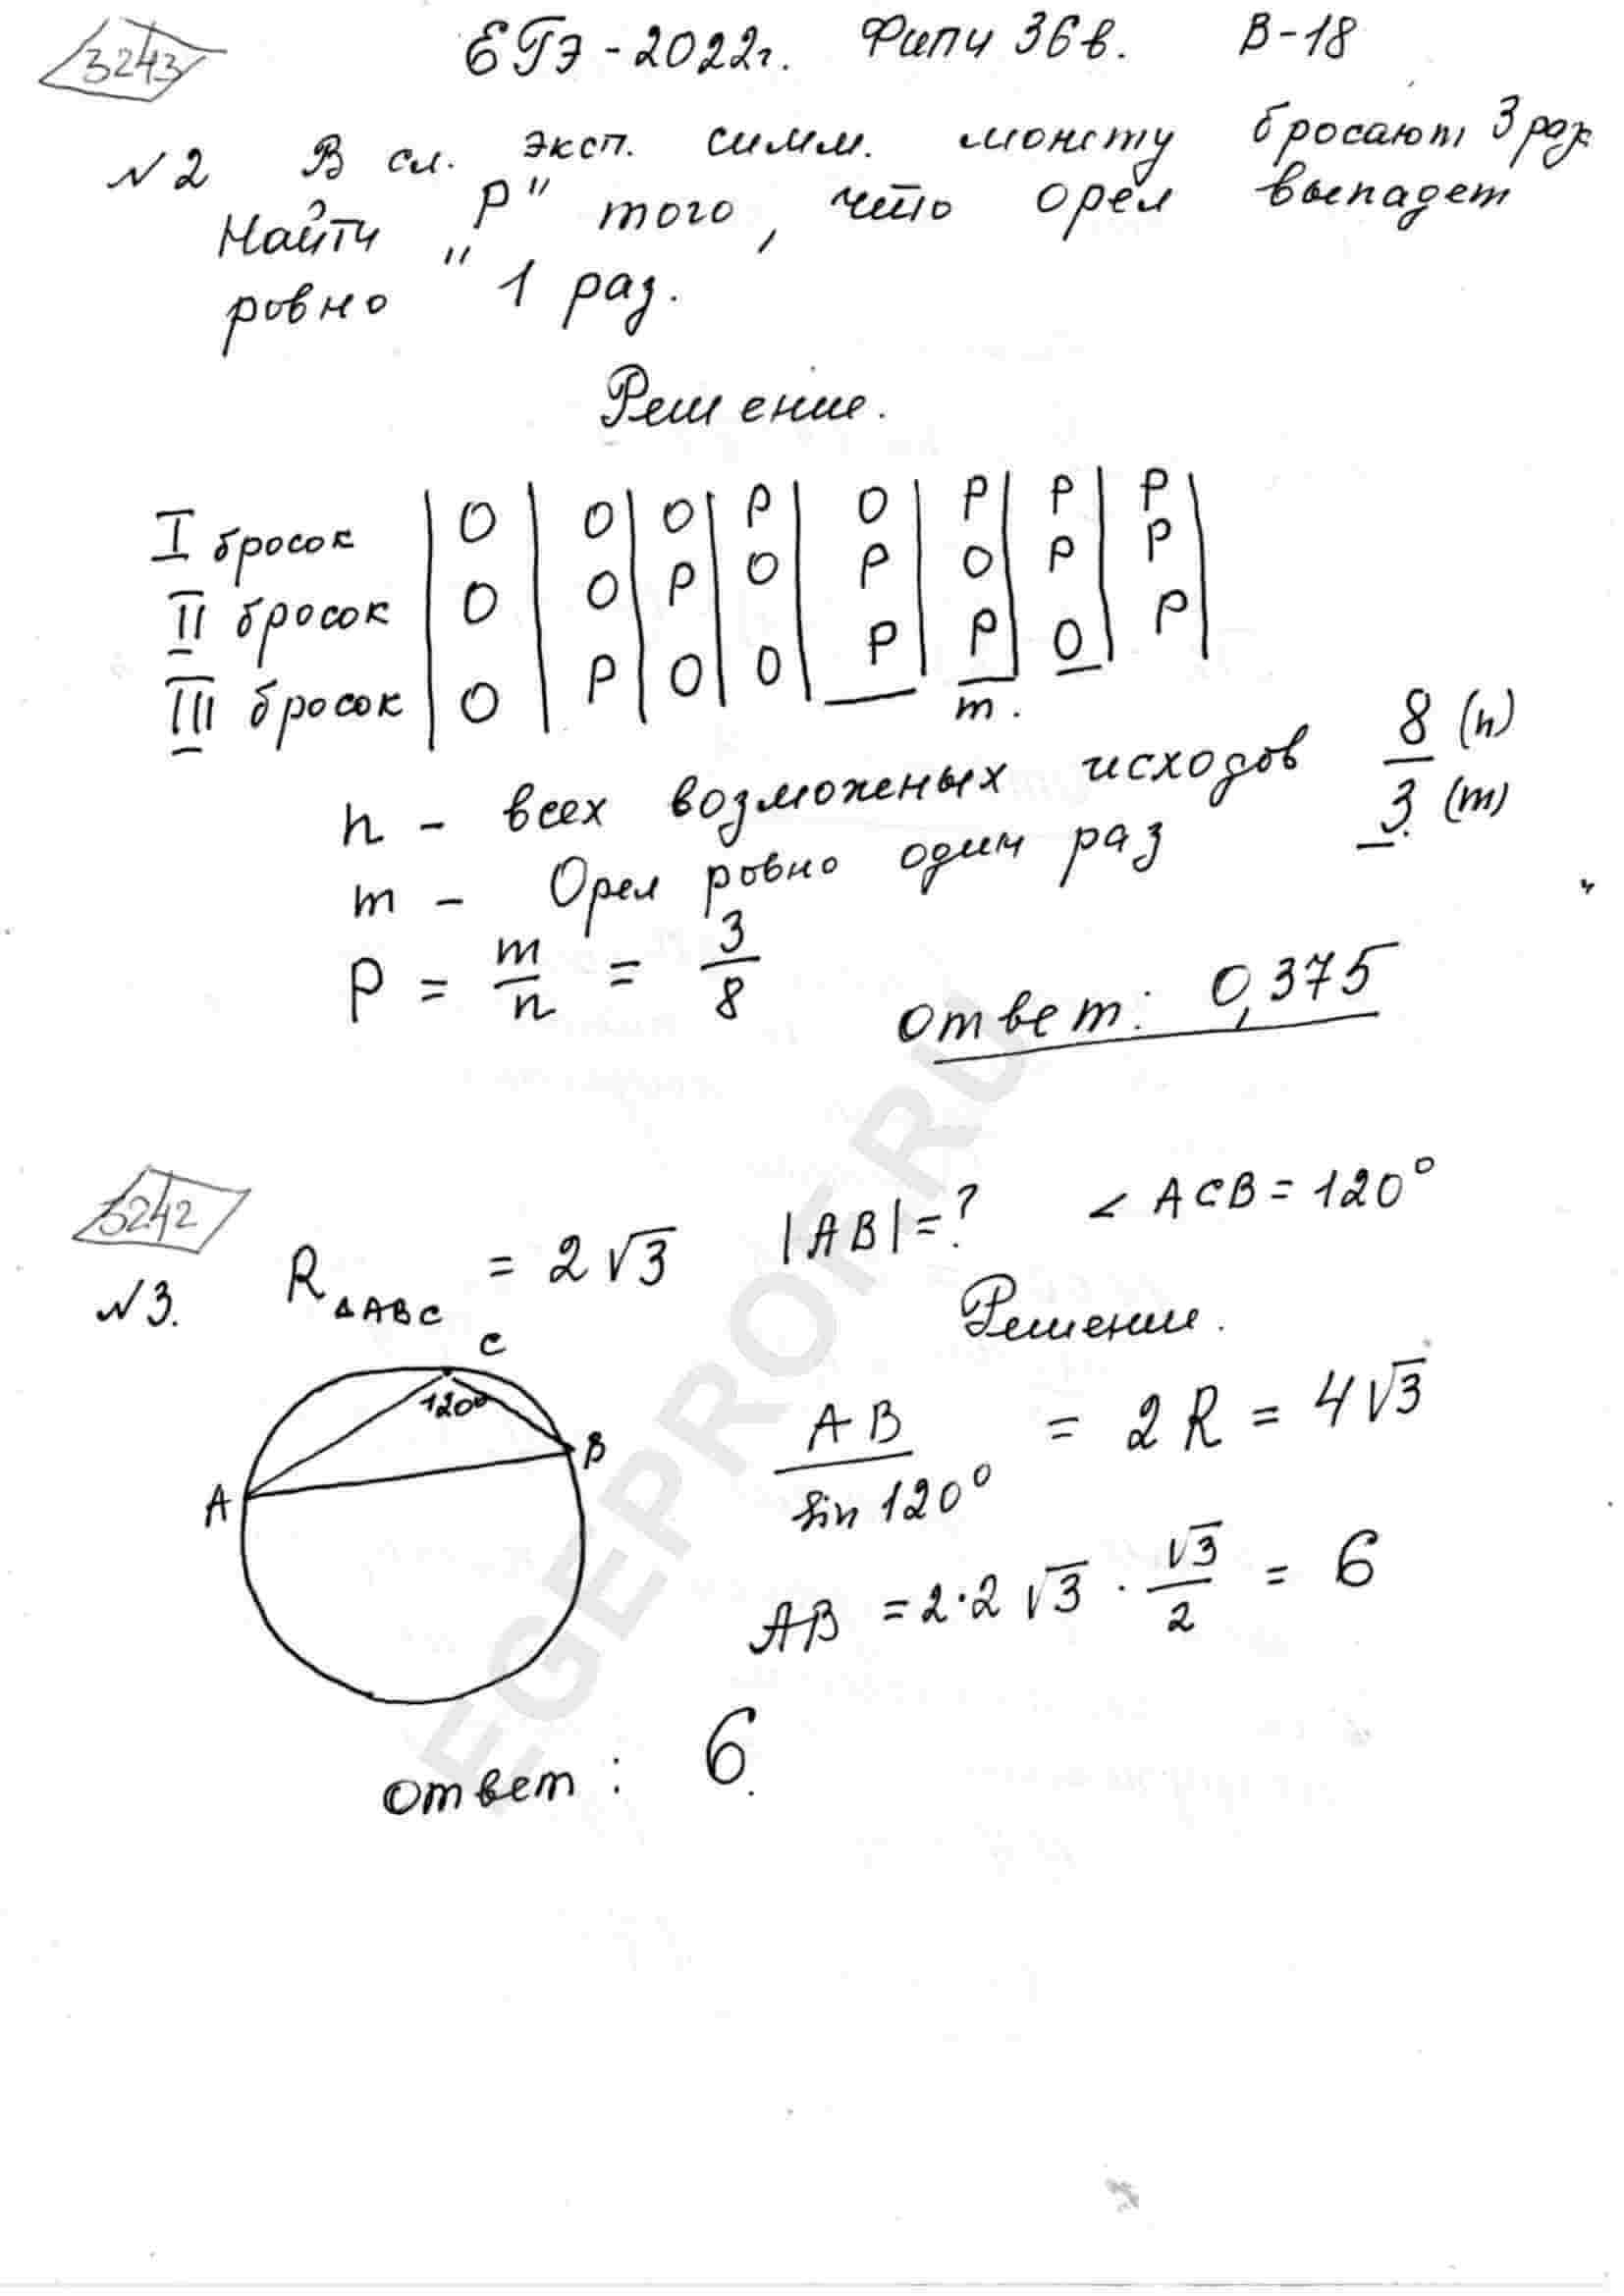 3243 ЕГЭ-2022г. Фипи 36в. В-18
№2 В сл. эксп. симм. монету бросают 3 раз
Найти "Р" того, что орел выпадет
ровно "1 раз.
Решение.
I бросок | О | О | О | Р | О | Р | Р | Р |
II бросок | О | О | Р | О | Р | О | Р | Р |
III бросок | О | Р | О | О | Р | Р | О | Р |
m.
n - всех возможеных исходов 8 (n)
m - Орел ровно один раз 3. (m)
P = m/n = 3/8
Ответ: 0,375
3242
№3. R ΔABC = 2√3 |AB|=? ∠ACB=120°
Решение.
C
120°
A
B
AB/sin 120° = 2R = 4√3
AB = 2·2√3 · √3/2 = 6
Ответ: 6.
EGEPROF.RU